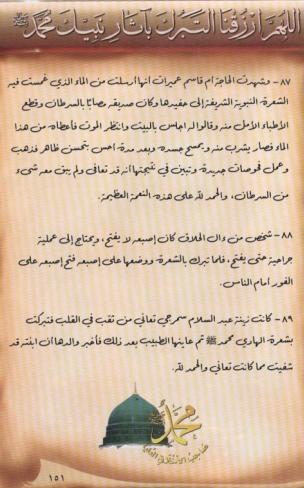 اللهم ارزقنا التبرك بآثار نبيك محمد ﷺ
٨٧ - وشهدت الحاجة ام قاسم عميرات أنها أرسلت من الماء الذي غمست فيه
الشعرة النبوية الشريفة إلى حفيدها وكان صديقه مصابًا بالسرطان وقطع
الأطباء الأمل منه وقالوا له اجلس بالبيت وانتظر الموت فأعطاه من هذا
الماء فصار يشرب منه ويمسح جسده وبعد مدة أحس بتحسن ظاهر فذهب
وعمل فحوصات جديدة وتبين في نتيجتها أنه قد تعافى ولم يبق معه شيء
من السرطان، والحمد لله على هذه النعمة العظيمة.
٨٨ - شخص من ءال الحلاق كان إصبعه لا يفتح، ويحتاج إلى عملية
جراحية حتى يفتح، فلما تبرك بالشعرة ووضعها على إصبعه فتح إصبعه على
الفور أمام الناس.
٨٩ - كانت زينة عبد السلام سمرجي تعاني من ثقب في القلب فتبركت
بشعرة الهادي محمد ﷺ ثم عاينها الطبيب بعد ذلك فأخبر والدها أن ابنته قد
شفيت مما كانت تعاني والحمد لله.
محمد ﷺ
١٥١